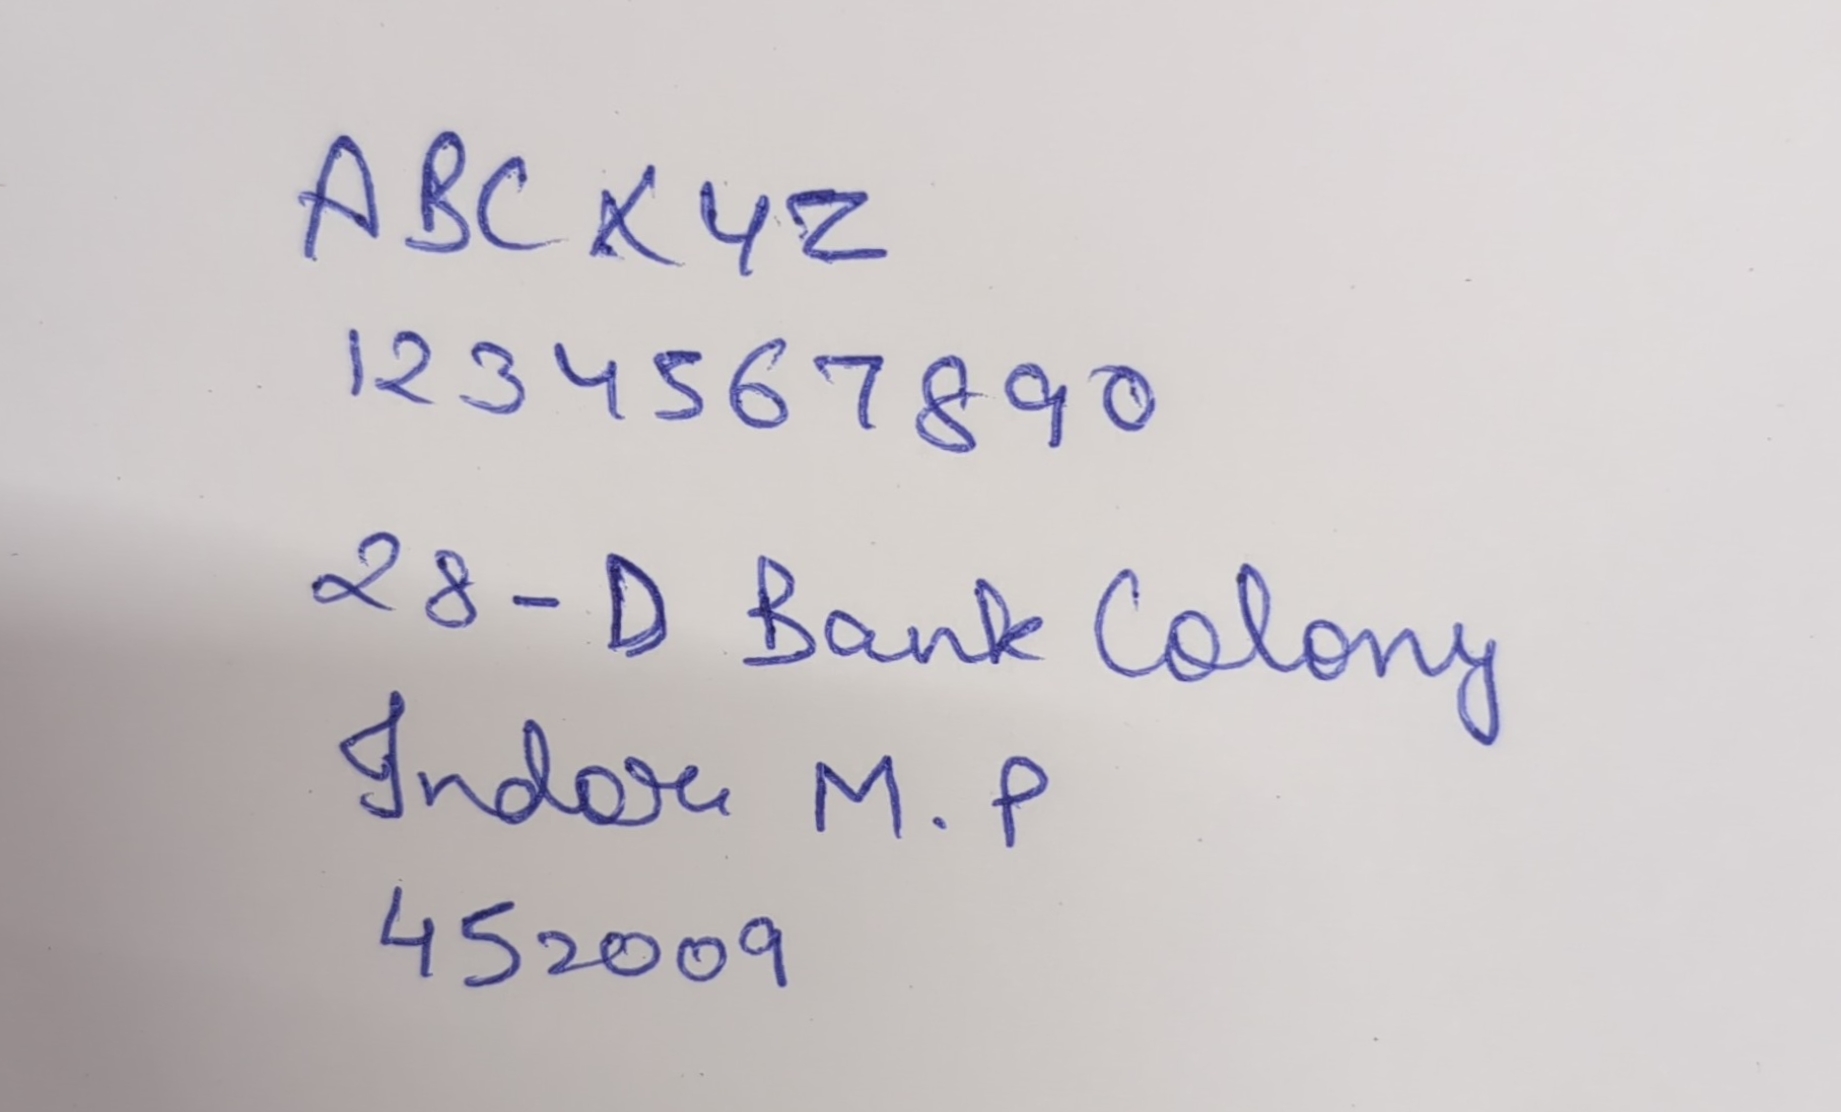 ABC XYZ
1234567890
28-D Bank Colony
Indore M.P
452009